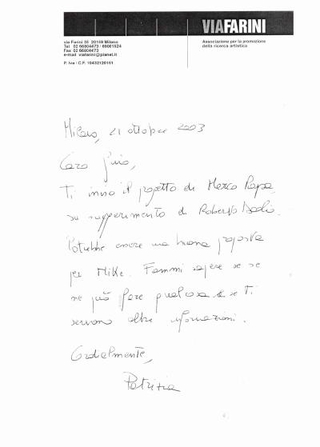 VIAFARINI
via Farini 35, 20159 Milano
Tel 02 66804473 / 69001524
Fax 02 66804473
e-mail viafarini@planet.it
P. Iva / C.F. 10432130151
Associazione per la promozione
della ricerca artistica
Milano, 21 ottobre 2003
Caro
Ti invio il progetto di Marco Papa
su suggerimento di Roberto Daolio.
Potrebbe essere una buona proposta
per Mike. Fammi sapere se se
ne può fare qualcosa e se ti
servono altre informazioni.
Cordialmente,
Patrizia